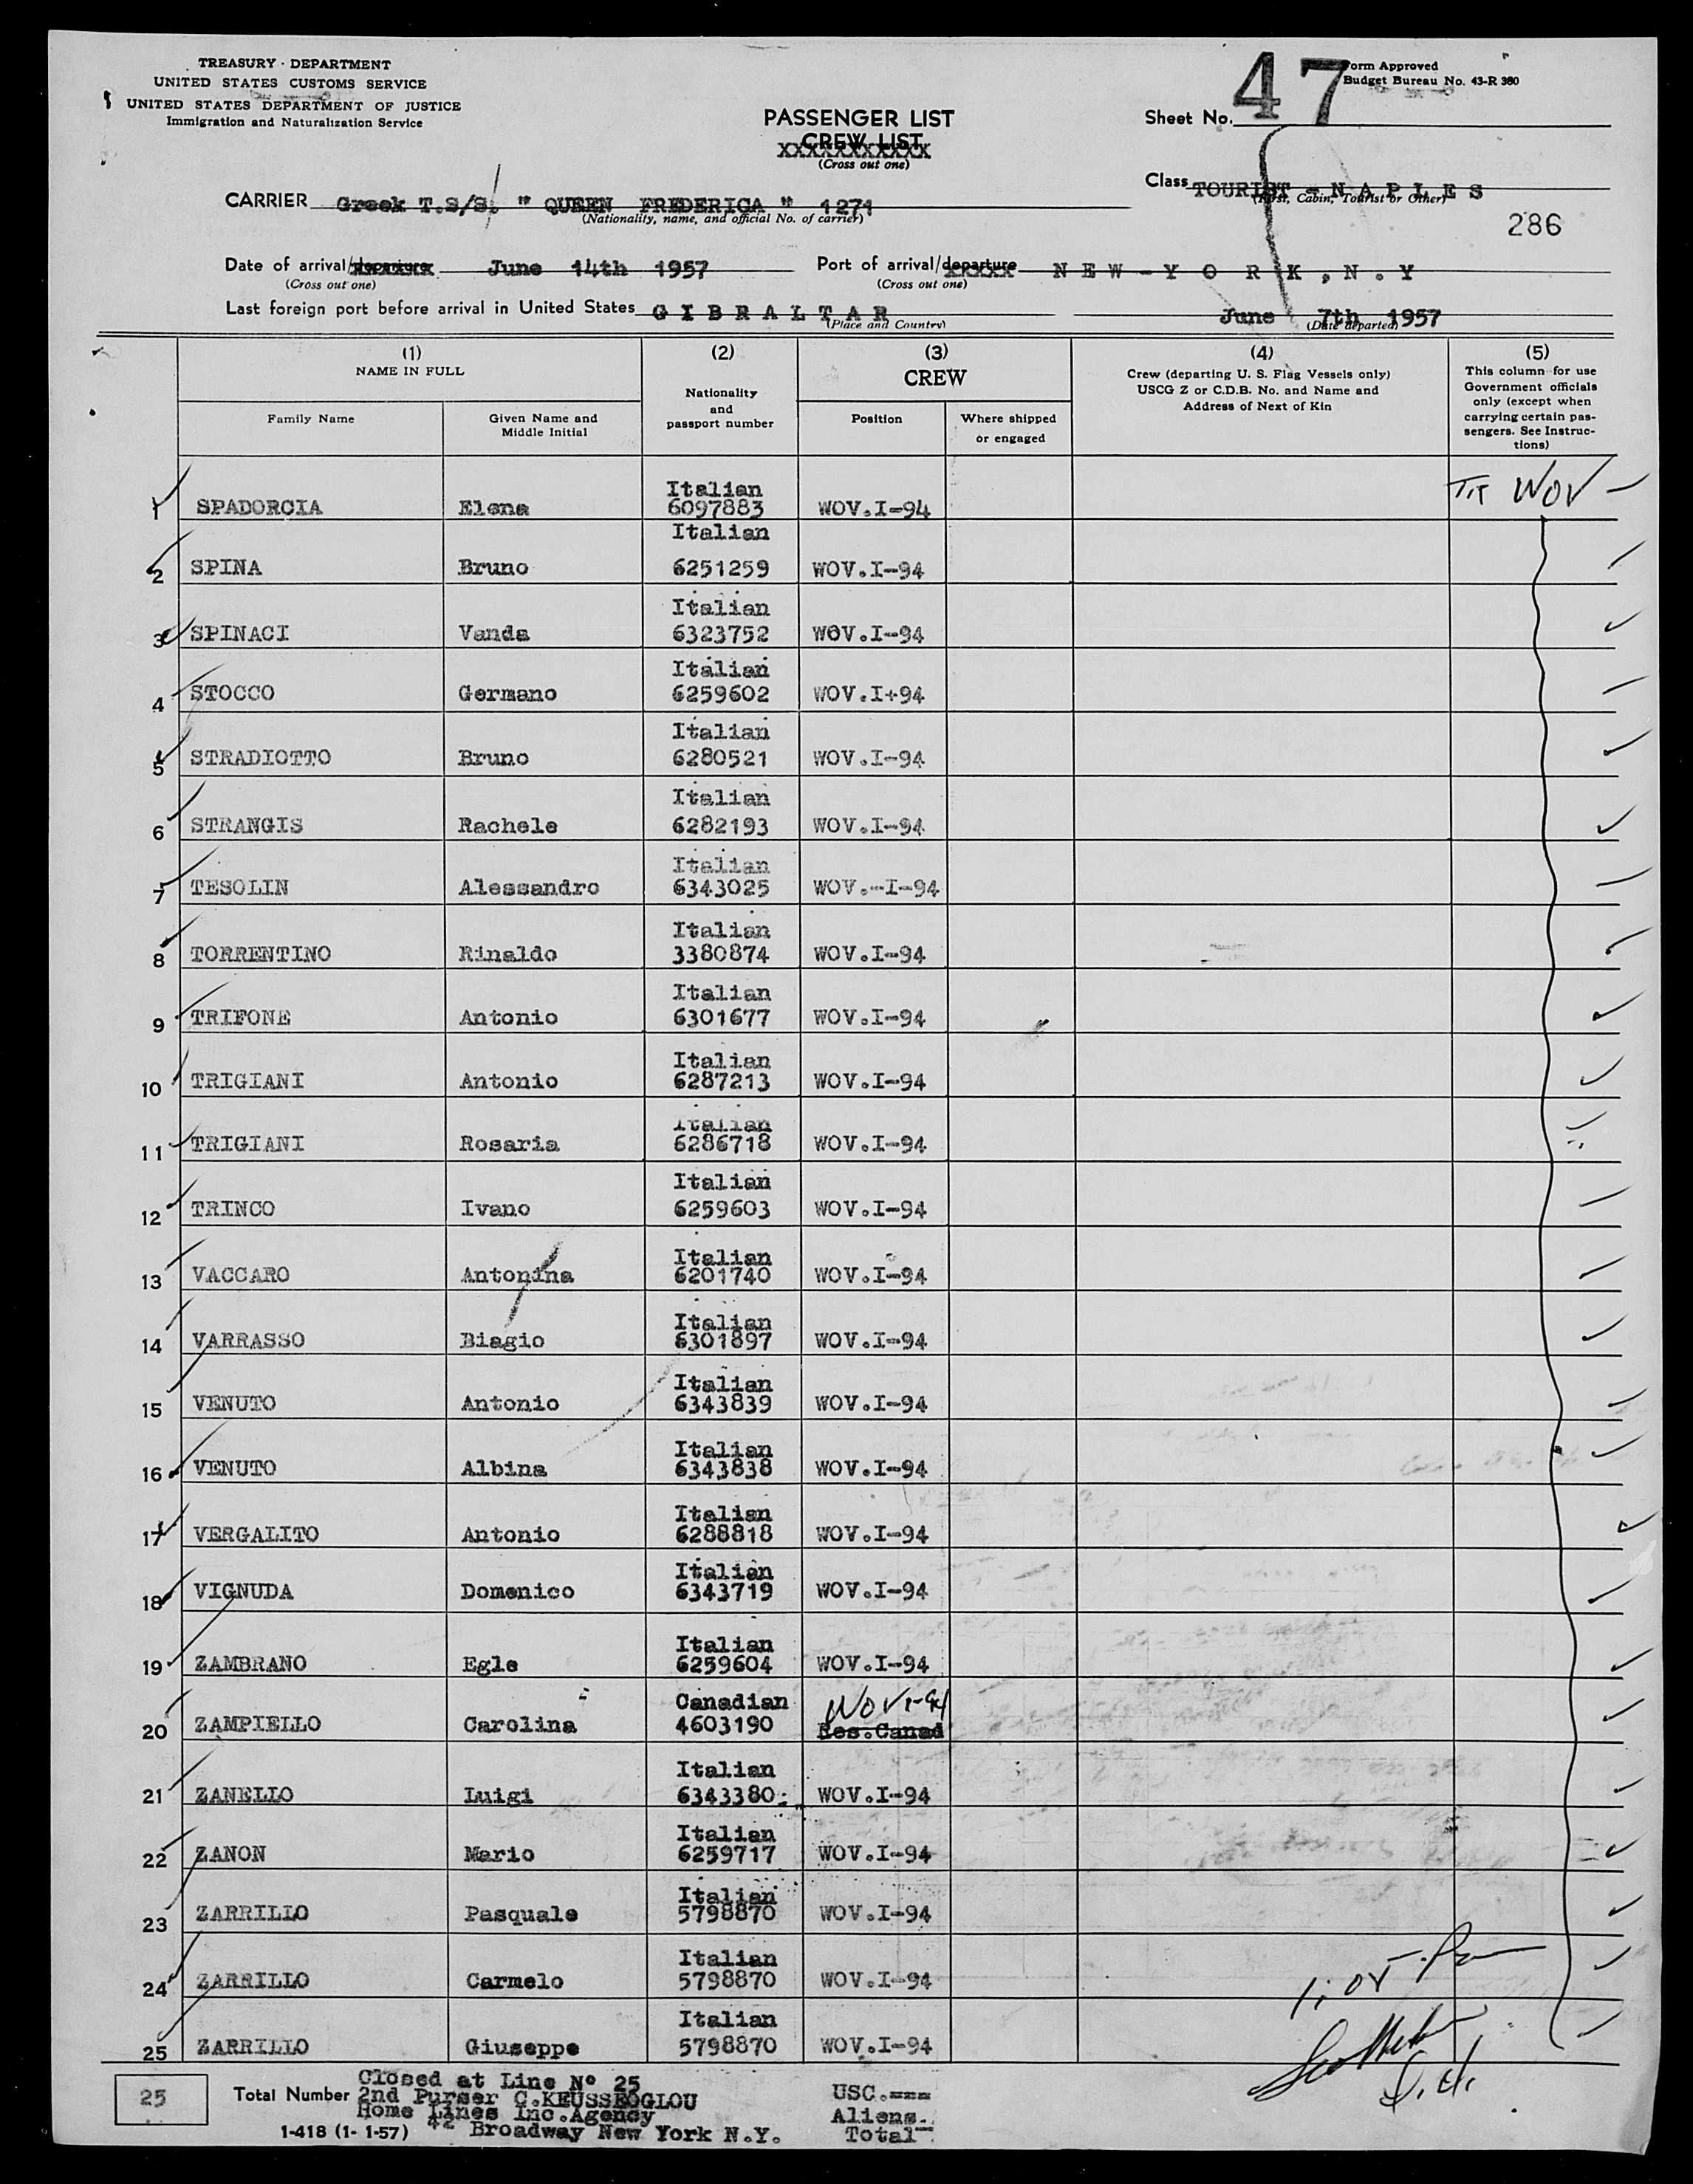 TREASURY · DEPARTMENT
UNITED STATES CUSTOMS SERVICE
UNITED STATES DEPARTMENT OF JUSTICE
Immigration and Naturalization Service
Form Approved
Budget Bureau No. 43-R 380
PASSENGER LIST
CREW LIST
XXXXXXXXXXX
(Cross out one)
Sheet No. 47
CARRIER Greek T.S/S. " QUEEN FREDERICA " 1271
(Nationality, name, and official No. of carrier)
Class TOURIST - N A P L E S
(First, Cabin, Tourist or Other)
286
Date of arrival/departure June 14th 1957
(Cross out one)
Port of arrival/departure N E W - Y O R K , N . Y
(Cross out one)
Last foreign port before arrival in United States G I B R A L T A R
(Place and Country)
June 7th 1957
(Date departed)
(1) (2) (3) (4) (5)
NAME IN FULL
Family Name
Given Name and Middle Initial
Nationality and passport number
CREW
Position
Where shipped or engaged
Crew (departing U. S. Flag Vessels only)
USCG Z or C.D.B. No. and Name and
Address of Next of Kin
This column for use
Government officials
only (except when
carrying certain pas-
sengers. See Instruc-
tions)
1 SPADORCIA Elena Italian 6097883 WOV.I-94 WOV
2 SPINA Bruno Italian 6251259 WOV.I-94
3 SPINACI Vanda Italian 6323752 WOV.I-94
4 STOCCO Germano Italian 6259602 WOV.I+94
5 STRADIOTTO Bruno Italian 6280521 WOV.I-94
6 STRANGIS Rachele Italian 6282193 WOV.I-94
7 TESOLIN Alessandro Italian 6343025 WOV.-I-94
8 TORRENTINO Rinaldo Italian 3380874 WOV.I-94
9 TRIFONE Antonio Italian 6301677 WOV.I-94
10 TRIGIANI Antonio Italian 6287213 WOV.I-94
11 TRIGIANI Rosaria Italian 6286718 WOV.I-94
12 TRINCO Ivano Italian 6259603 WOV.I-94
13 VACCARO Antonina Italian 6201740 WOV.I-94
14 VARRASSO Biagio Italian 6301897 WOV.I-94
15 VENUTO Antonio Italian 6343839 WOV.I-94
16 VENUTO Albina Italian 6343838 WOV.I-94
17 VERGALITO Antonio Italian 6288818 WOV.I-94
18 VIGNUDA Domenico Italian 6343719 WOV.I-94
19 ZAMBRANO Egle Italian 6259604 WOV.I-94
20 ZAMPIELLO Carolina Canadian 4603190 WOV I-94 Res.Canad
21 ZANELLO Luigi Italian 6343380 WOV.I-94
22 ZANON Mario Italian 6259717 WOV.I-94
23 ZARRILLO Pasquale Italian 5798870 WOV.I-94
24 ZARRILLO Carmelo Italian 5798870 WOV.I-94
25 ZARRILLO Giuseppe Italian 5798870 WOV.I-94
25
Total Number
Closed at Line Nº 25
2nd Purser C.KEUSSEOGLOU
Home Lines Inc.Agency
42 Broadway New York N.Y.
1-418 (1- 1-57)
USC.===
Aliens.
Total